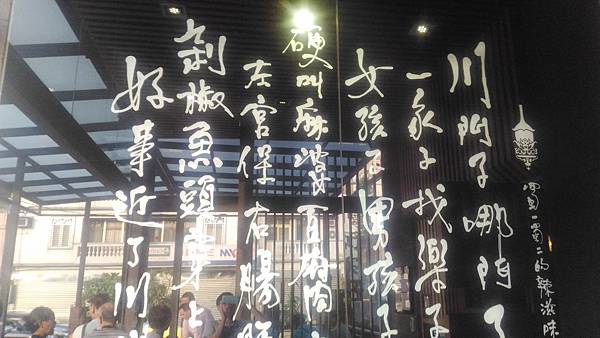 蜀一蜀二的辣滋味
川門子哪門了
一家子找樂子
女孩子男孩子
硬叫麻婆豆腐閃
左宮保右腸
剁椒魚頭穿上
好事近了川